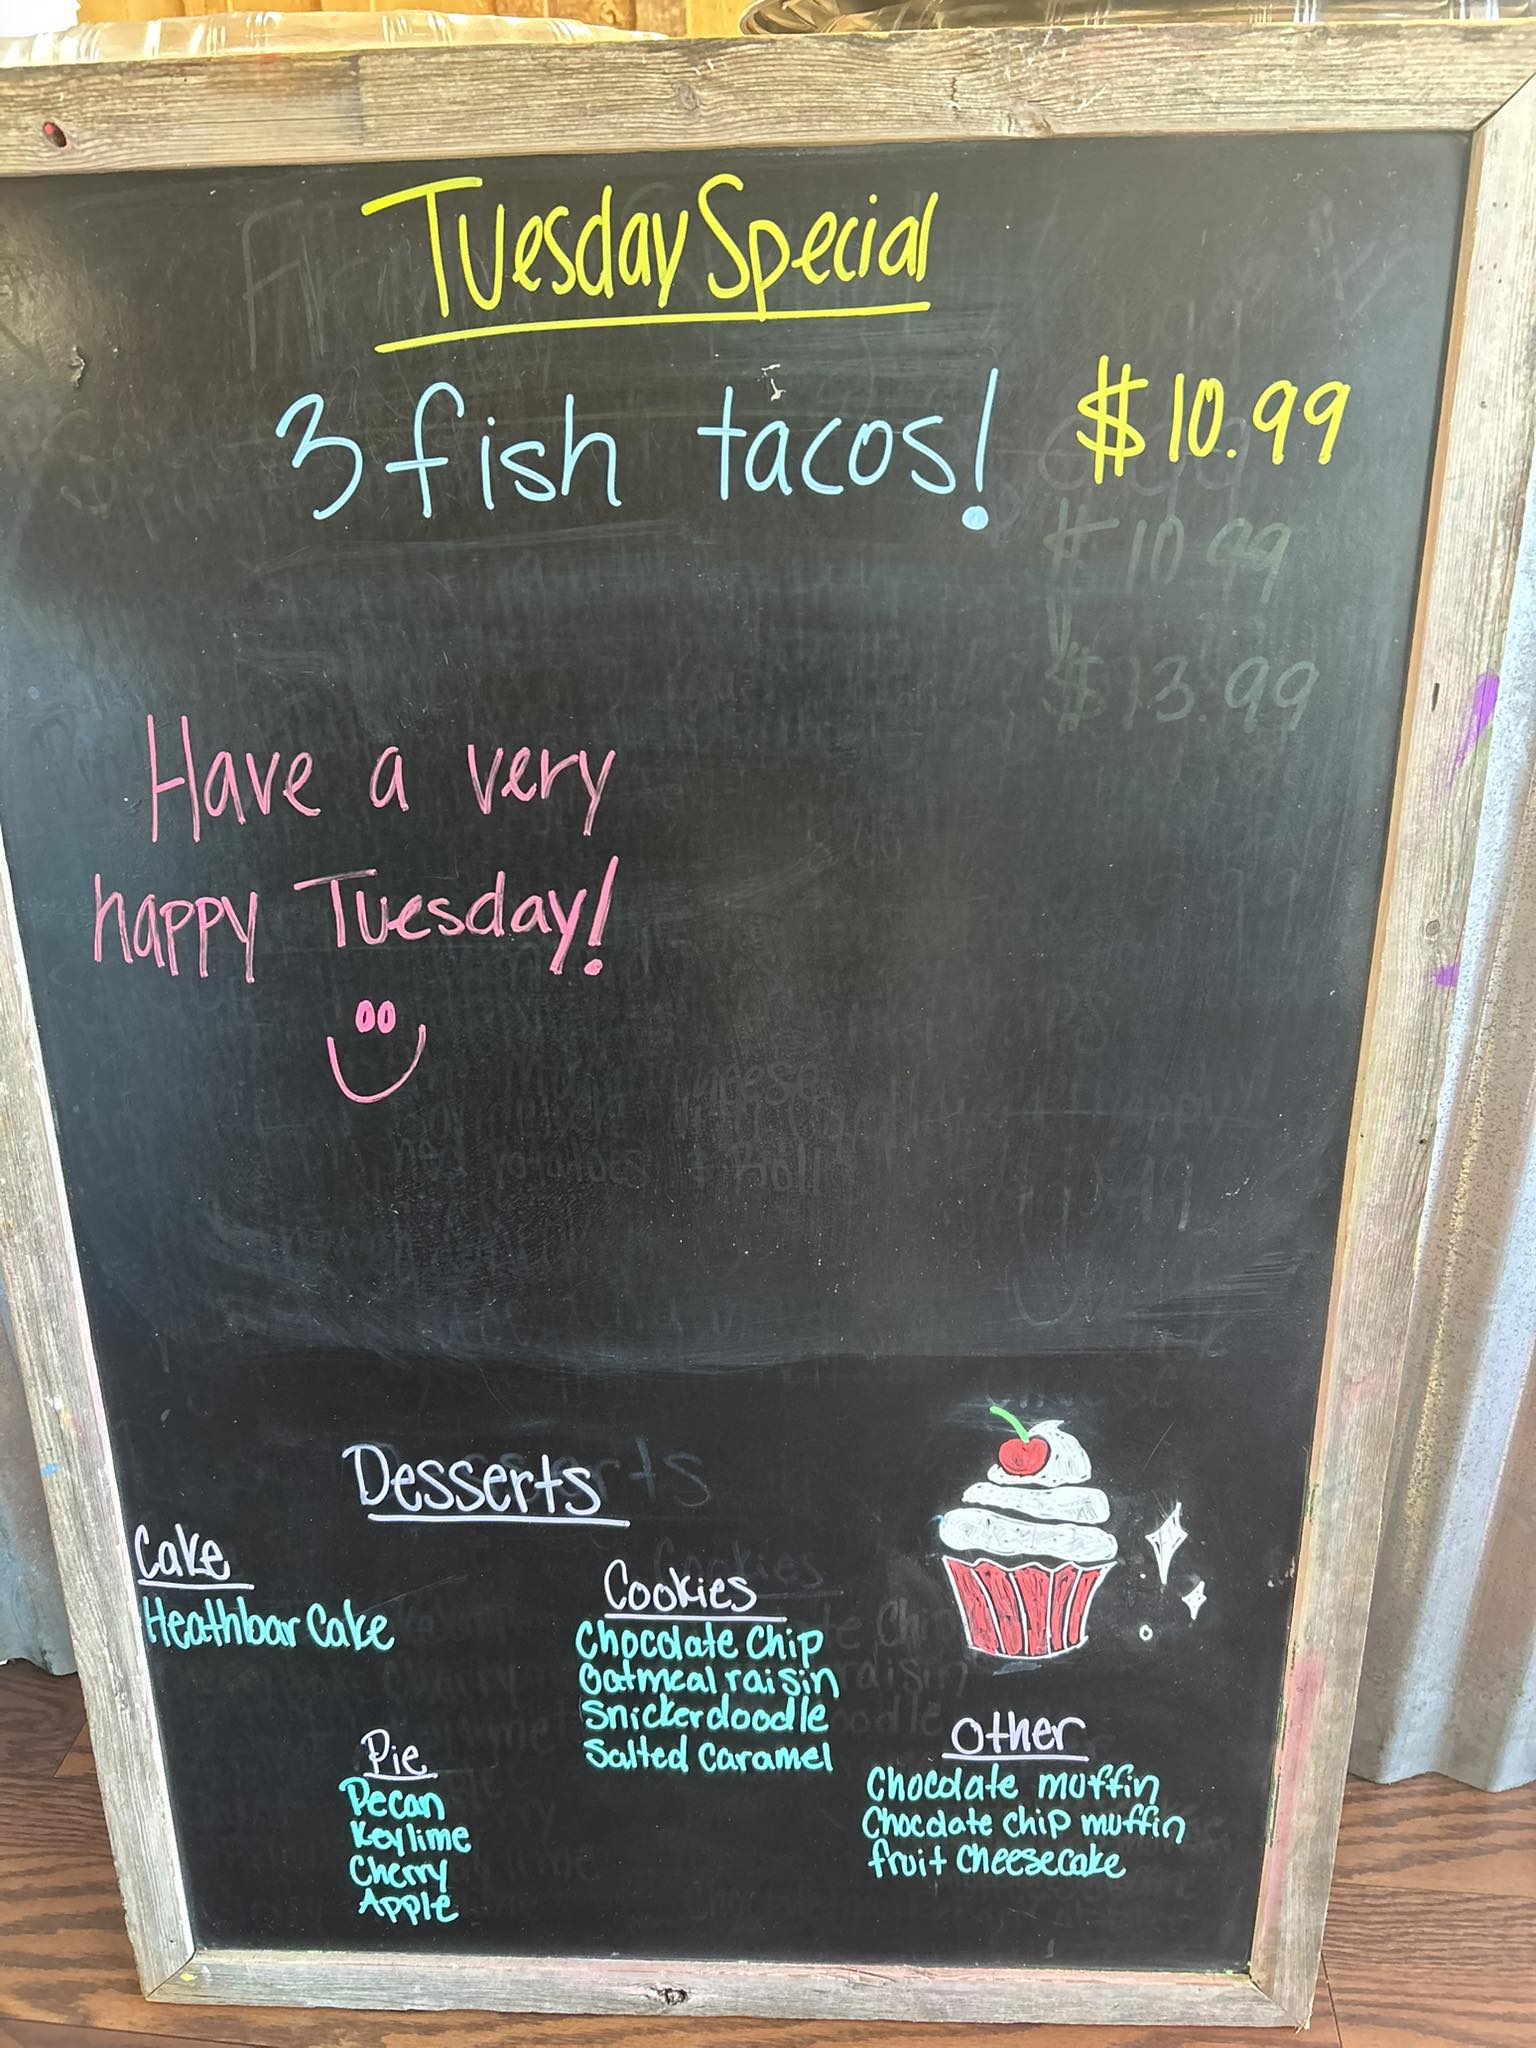 Tuesday Special
3 fish tacos! $10.99
$10.99
$13.99
Have a very
happy Tuesday!
Desserts
Cake
Heathbar Cake
Cookies
Chocolate Chip
Oatmeal raisin
Snickerdoodle
Salted Caramel
Pie
Pecan
Keylime
Cherry
Apple
Other
Chocolate muffin
Chocolate chip muffin
fruit cheesecake